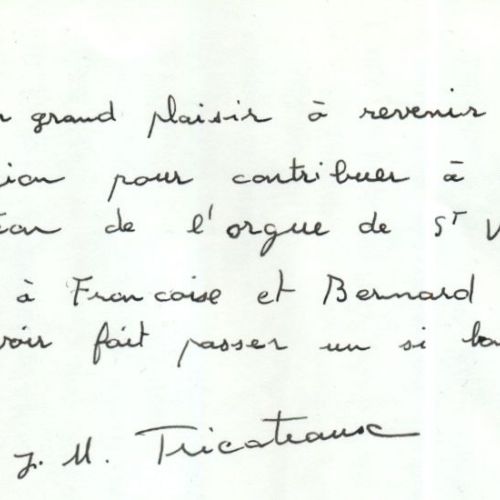 grand plaisir à revenir
pour contribuer à
de l'orgue de St V
à Francoise et Bernard
voir fait passer un si
J. M. Tricoteaux